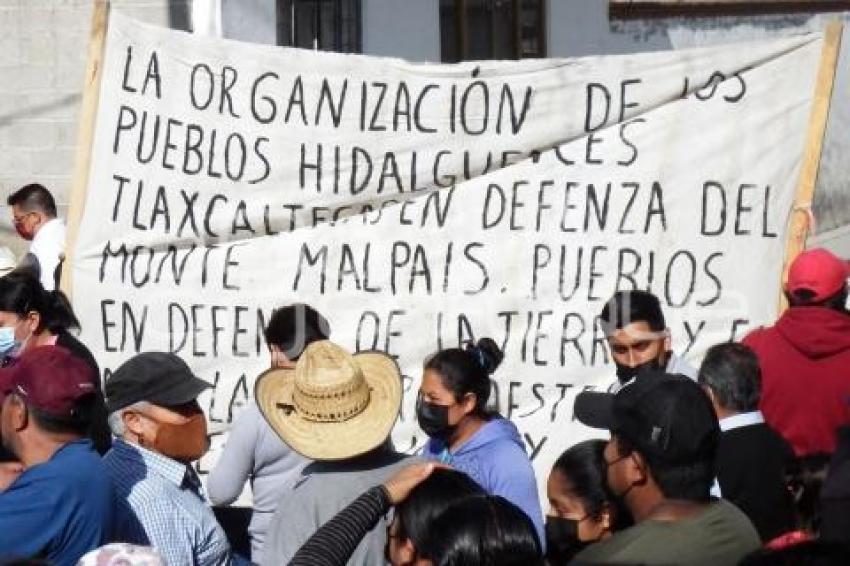 LA ORGANIZACIÓN DE LOS
PUEBLOS HIDALGUENCES
TLAXCALTECAS EN DEFENZA DEL
MONTE MALPAIS. PUEBLOS
EN DEFENZA DE LA TIERRA Y E